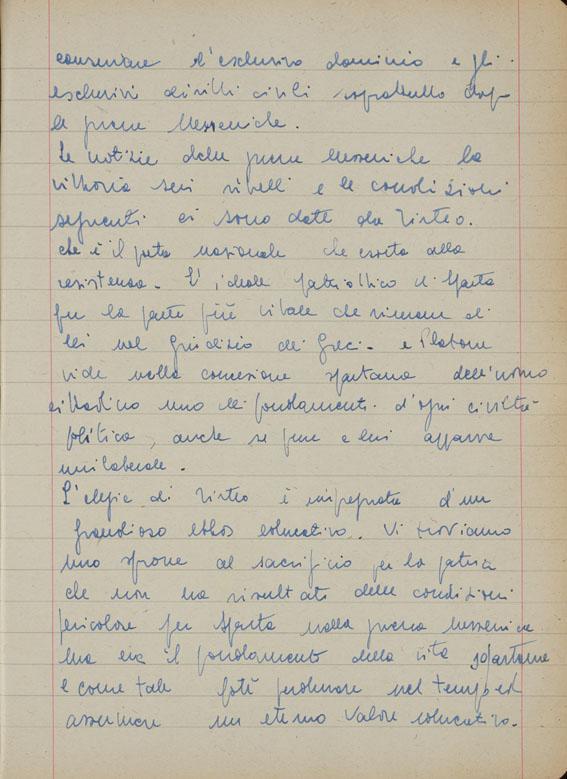 conservare l'esclusivo dominio e gli
esclusivi diritti civili soprattutto dopo
le guerre Messeniche.
Le notizie delle guerre Messeniche la
vittoria sui ribelli e le condizioni
seguenti ci sono date da Tirteo.
che è il poeta nazionale che esorta alla
resistenza. L'ideale patriottico di Sparta
fu la parte più vitale che rimane di
lei nel giudizio dei Greci. e Platone
vide nella concezione spartana dell'uomo
cittadino uno dei fondamenti d'ogni civiltà
politica, anche se pure a lui apparve
unilaterale.
L'elegia di Tirteo è impregnata d'un
grandioso ethos educativo. Vi troviamo
uno sprone al sacrificio per la patria
che non ha risultati delle condizioni
pericolose per Sparta nella guerra messenica
ma era il fondamento della vita spartana
e come tale poté perdurare nel tempo ed
assumere un eterno valore educativo.